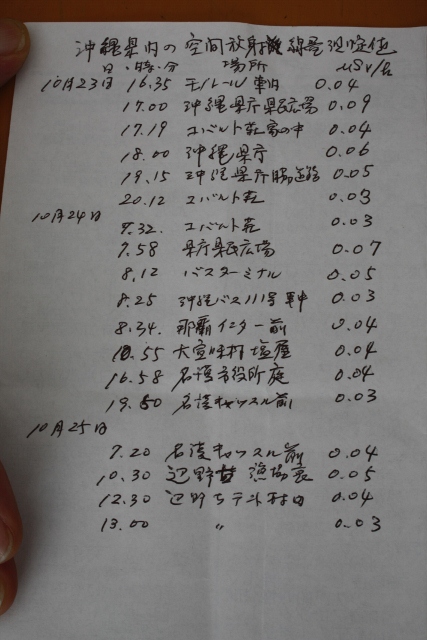 沖縄県内の空間放射線量測定値
日・時・分 場所 μSv/h
10月23日 16.35 モノレール車内 0.04
17.00 沖縄県庁県民広場 0.09
17.19 コバルト荘家の中 0.04
18.00 沖縄県庁 0.06
19.15 沖縄県庁脇道路 0.05
20.12 コバルト荘 0.03
10月24日
7.32. コバルト荘 0.03
7.58 県庁県民広場 0.07
8.12 バスターミナル 0.05
8.25 沖縄バス111号車中 0.03
8.34. 那覇インター前 0.04
10.55 大宜味村塩屋 0.04
16.58 名護市役所庭 0.04
19.50 名護キャッスル前 0.03
10月25日
7.20 名護キャッスル前 0.04
10.30 辺野古漁協裏 0.05
12.30 辺野古テント村内 0.04
13.00 〃 0.03